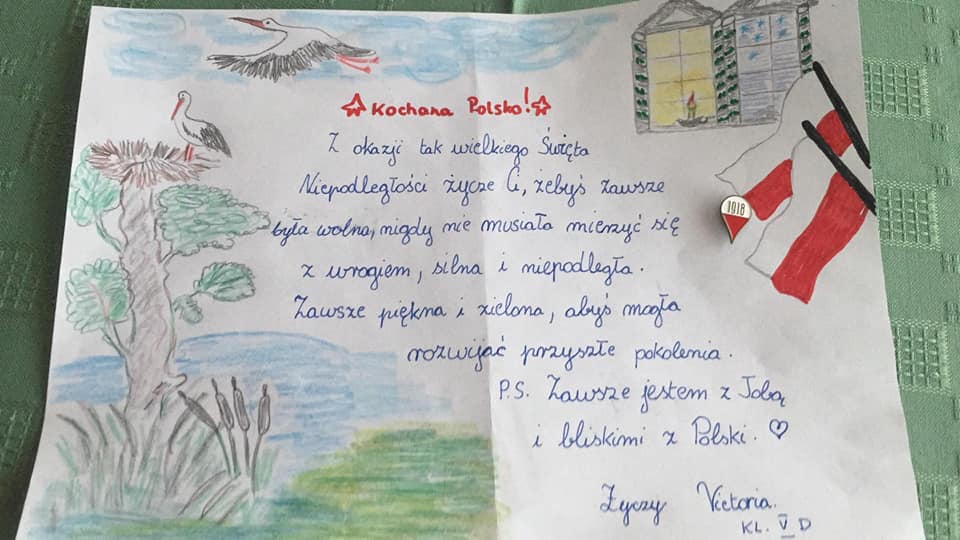 Kochana Polsko!
Z okazji tak wielkiego Święta
Niepodległości życze Ci, żebyś zawsze
była wolna, nigdy nie musiała mierzyć się
z wrogiem, silna i niepodległa.
Zawsze piękna i zielona, abyś mogła
rozwijać przyszłe pokolenia.
P.S. Zawsze jestem z Tobą
i bliskimi z Polski. ♡
Życzy Victoria.
KL. V D
1918